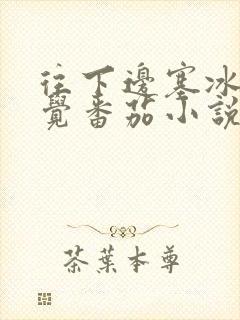 往下邊塞冰
覺番茄小說
茶葉本尊